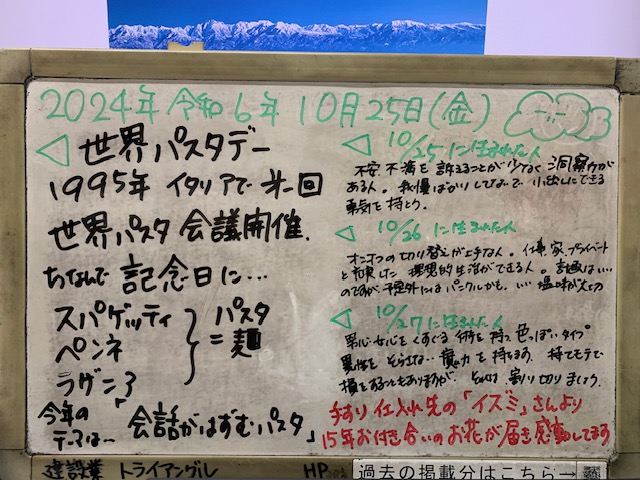 2024年 令和6年 10月25日(金)
◁ 世界パスタデー
1995年 イタリアで 第一回
世界パスタ会議開催.
ちなんで 記念日に…
スパゲッティ
ペンネ
ラザニア
} パスタ
= 麺
今年の
テーマは… 「会話がはずむパスタ」
◁ 10/25 に生まれた人
不安 不満を 訴えることが少なく 洞察力が
ある人。我慢ばかりしてないで 小出しにできる
勇気を持とう。
◁ 10/26 に生まれた人
オンオフの切り替えが上手な人。仕事、家、プライベート
理想的生活ができる人。普通はいい
のですが、予想外にはパニクるかも。いい 塩味が大切
◁ 10/27 に生まれた人
男心女心をくすぐる 術を持つ 色っぽいタイプ
異性を そらさない 魔力を 持ちます。持てモテで
損をすることもありますが、それは 割り切りましょう。
手すり 仕入れ先の「イズミ」さんより
15年お付き合いの お花が届き感動してます
建設業 トライアングル HP
過去の掲載分はこちら→